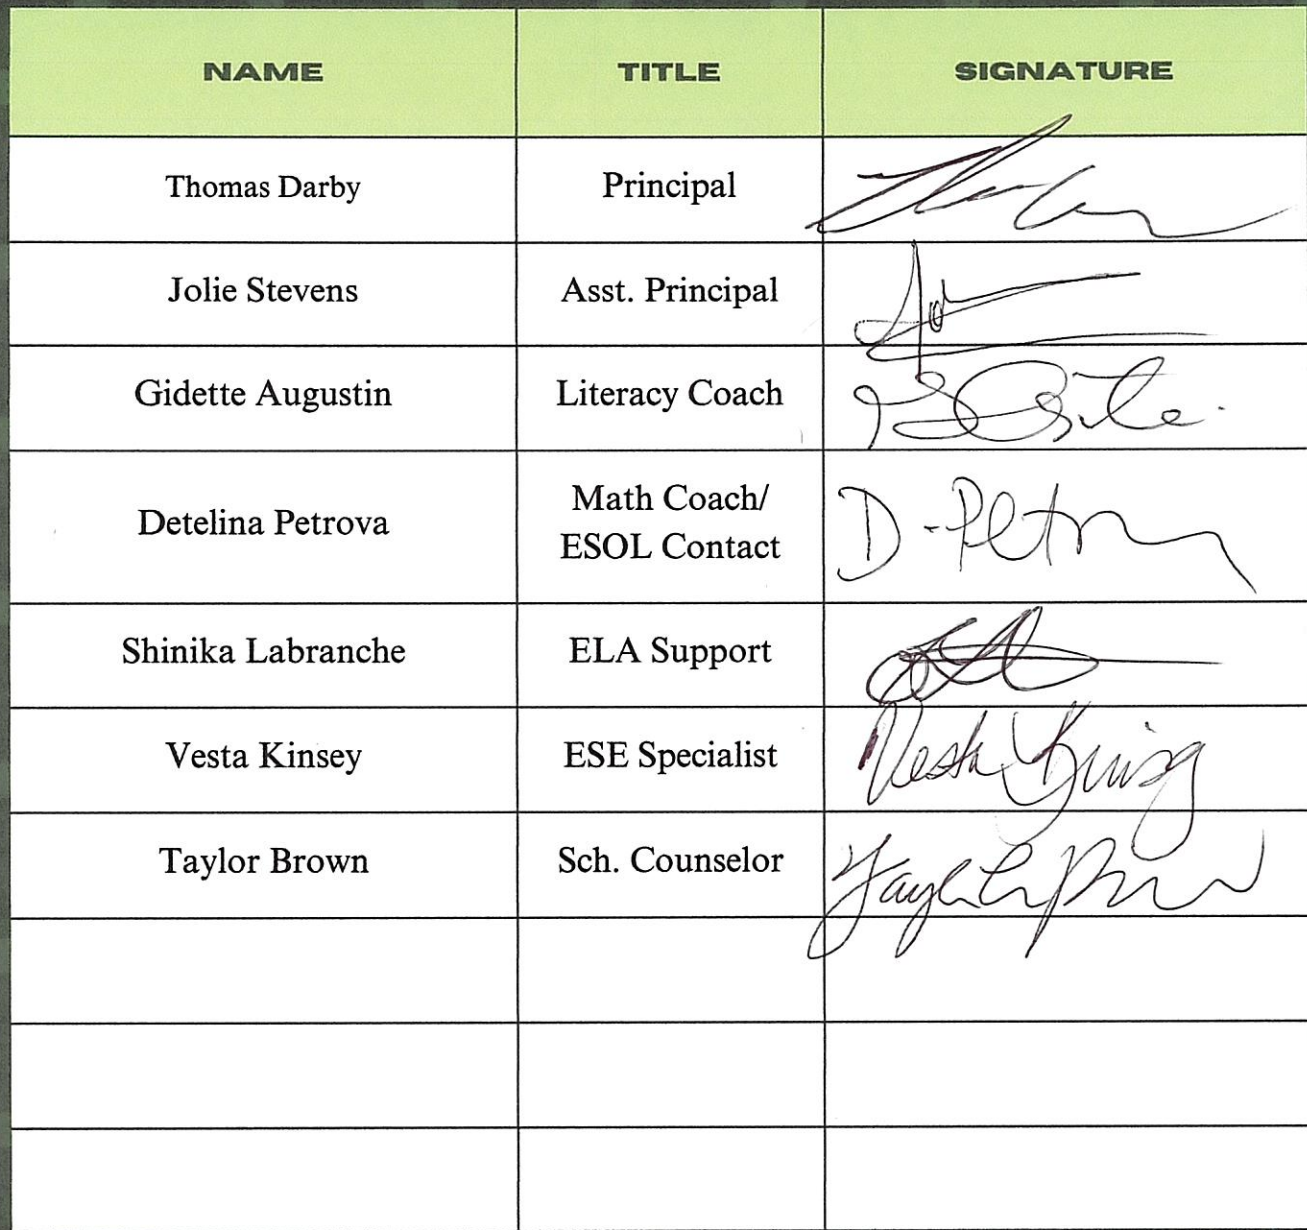 NAME TITLE SIGNATURE
Thomas Darby Principal
Jolie Stevens Asst. Principal
Gidette Augustin Literacy Coach
Detelina Petrova Math Coach/
ESOL Contact D-Petrova
Shinika Labranche ELA Support
Vesta Kinsey ESE Specialist Vesta Kinsey
Taylor Brown Sch. Counselor Taylor Brown